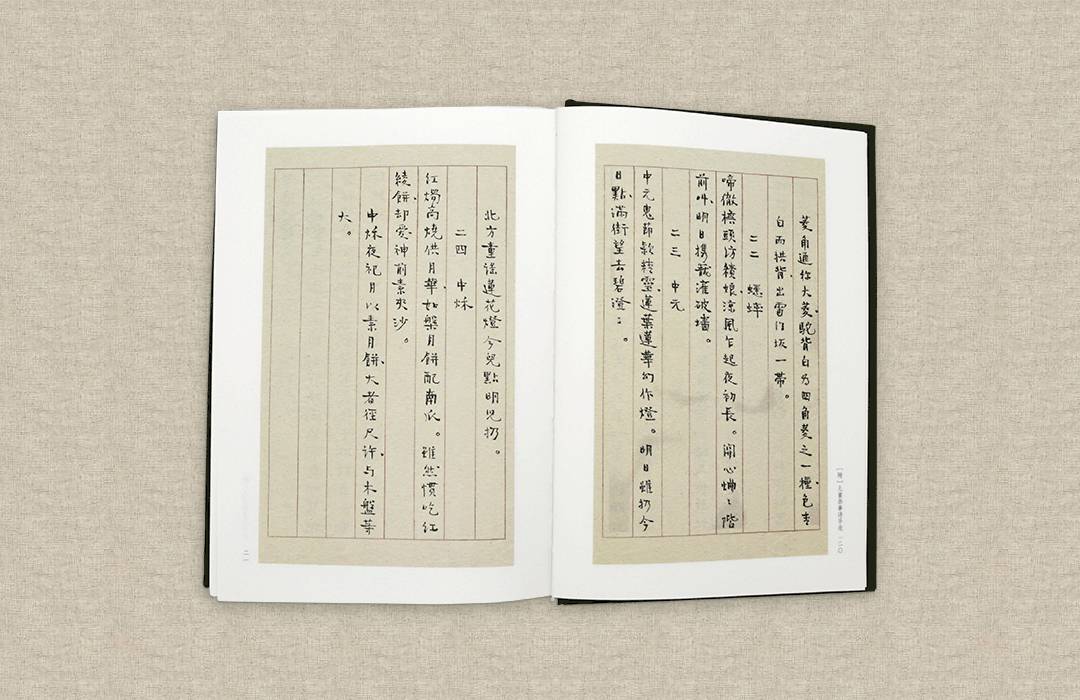 菱角通作大菱、駝背白为四角菱之一種色青
白而拱背、出雷门坂一帶。
二二 蟋蟀
啼徹檐頭纺績娘涼風乍起夜初長。關心蛐ミ階
前叫、明日攜籠灌破墻。
二三 中元
中元鬼節款精靈、蓮葉蓮華幻作燈。明日雖扔今
日點、滿街望去碧澄ミ。
[附]儿童杂事诗手迹 一二〇
北方童謠蓮花燈今兒點明兒扔。
二四 中秌
红燭高燒供月華、如盤月餅配南瓜。雖然慣吃红
綾餅、却愛神前素夾沙。
中秌夜祀月以素月餅、大者徑尺许、与木盤等
大。